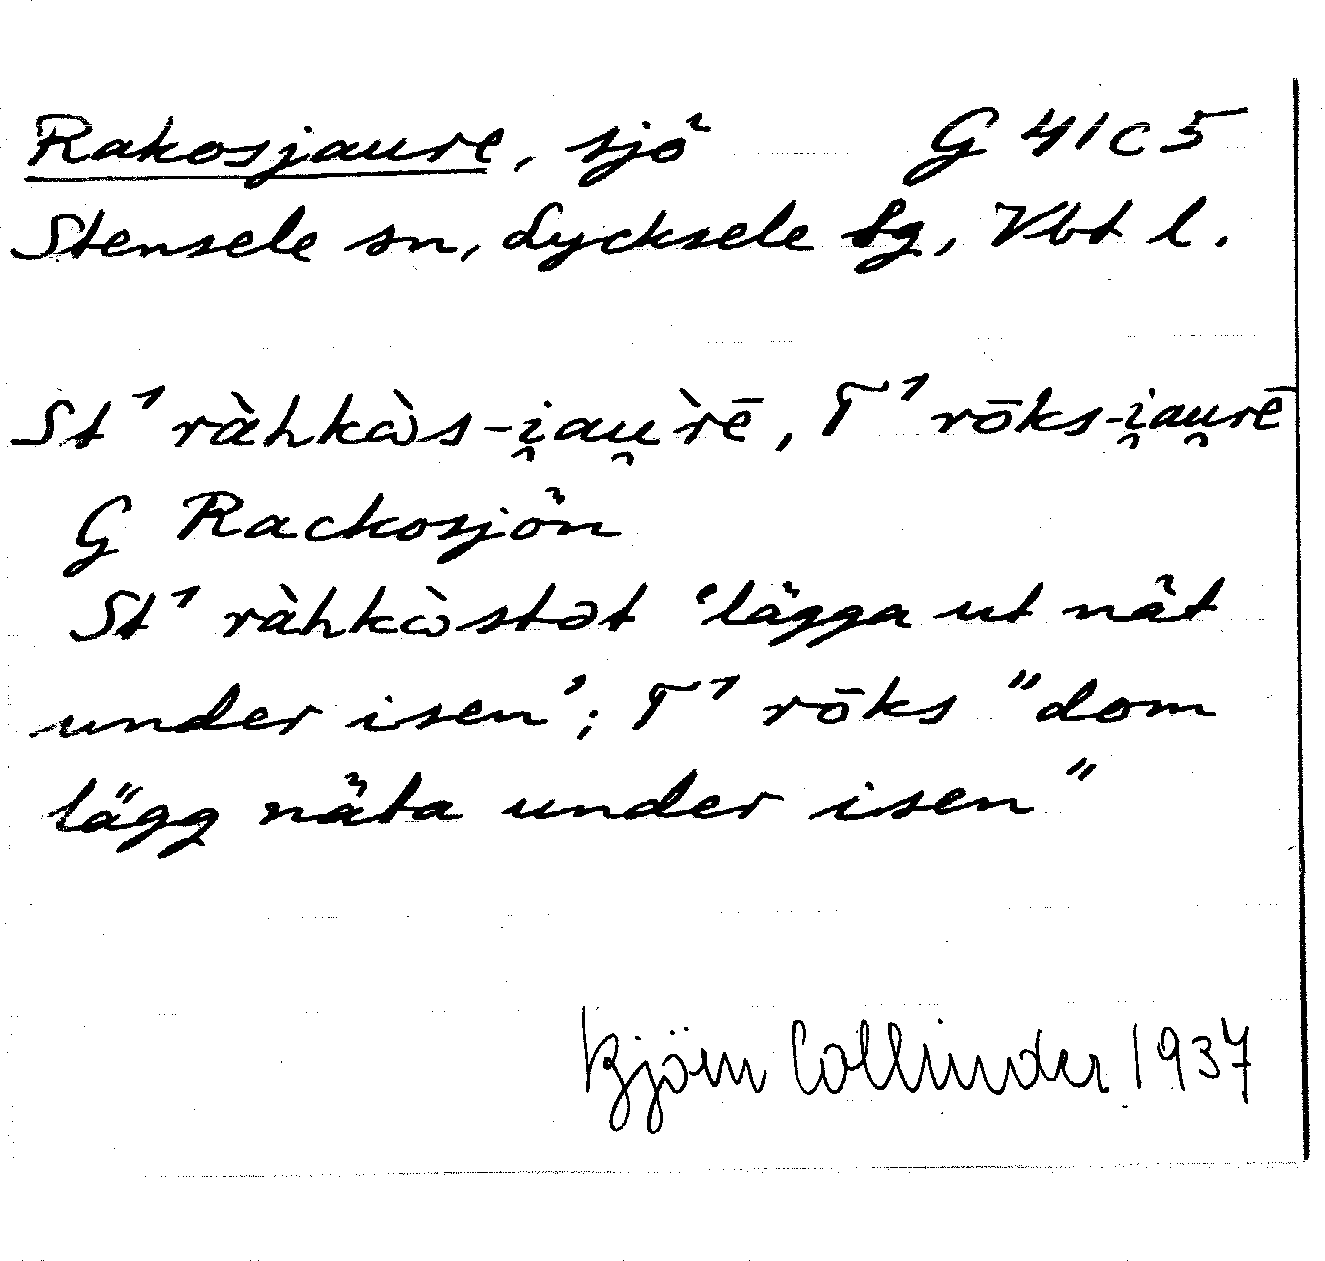 Rakosjaure, sjö G 41 C 5
Stensele sn, Lycksele lg, Vbt l.
St¹ ràhkàs-i̯au̯rē, T¹ rōks-i̯au̯rē
G Rackosjön
St¹ ràhkàstət 'lägga ut nät
under isen'; T¹ rōks "dom
lägg näta under isen"
Björn Collinder 1937